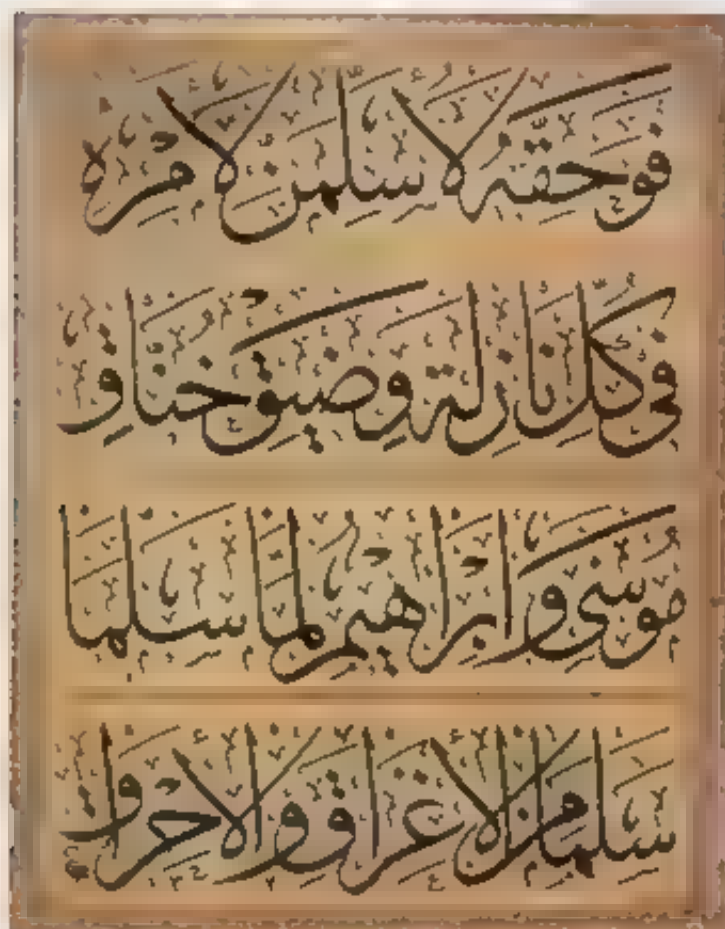 فوحقه لاسلمن لامره
في كل نازلة وضيق خناق
موسى وابراهيم لما سلما
سلما من الاغراق والاحراق